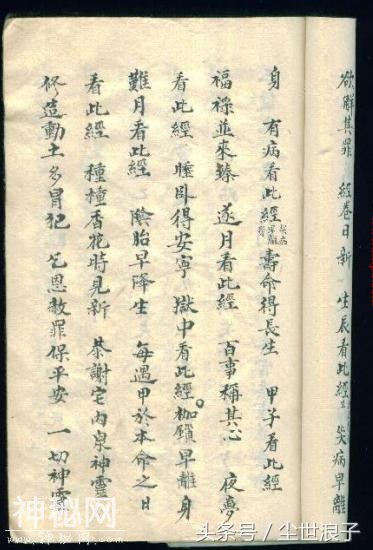 欲解其罪 經卷日新 生辰看此經 災病早離
身 有病看此經 壽命得長生 甲子看此經
福祿並來臻 逐月看此經 百事稱其心 夜夢
看此經 睡臥得安寧 獄中看此經 枷鎖早離身
難月看此經 陰胎早降生 每遇甲於本命之日
看此經 種種香花時見新 恭謝宅內眾神靈
修造動土多冒犯 乞恩赦罪保平安 一切神靈
神秘网
头条号 / 尘世浪子